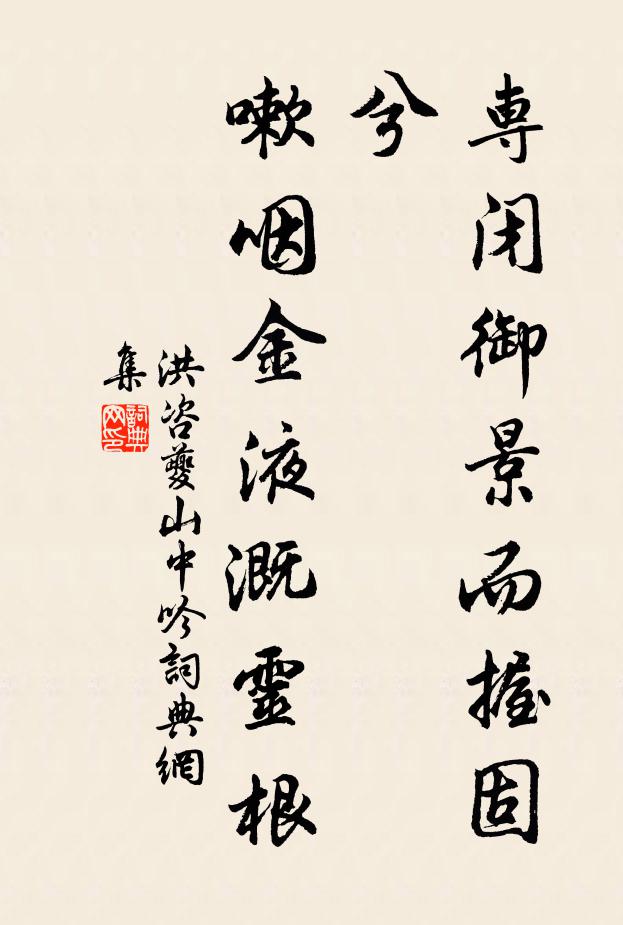 専闭御景而握固
兮
嗽咽金液溉靈根
洪咨夔山中吟詞典網
集
詞典网印